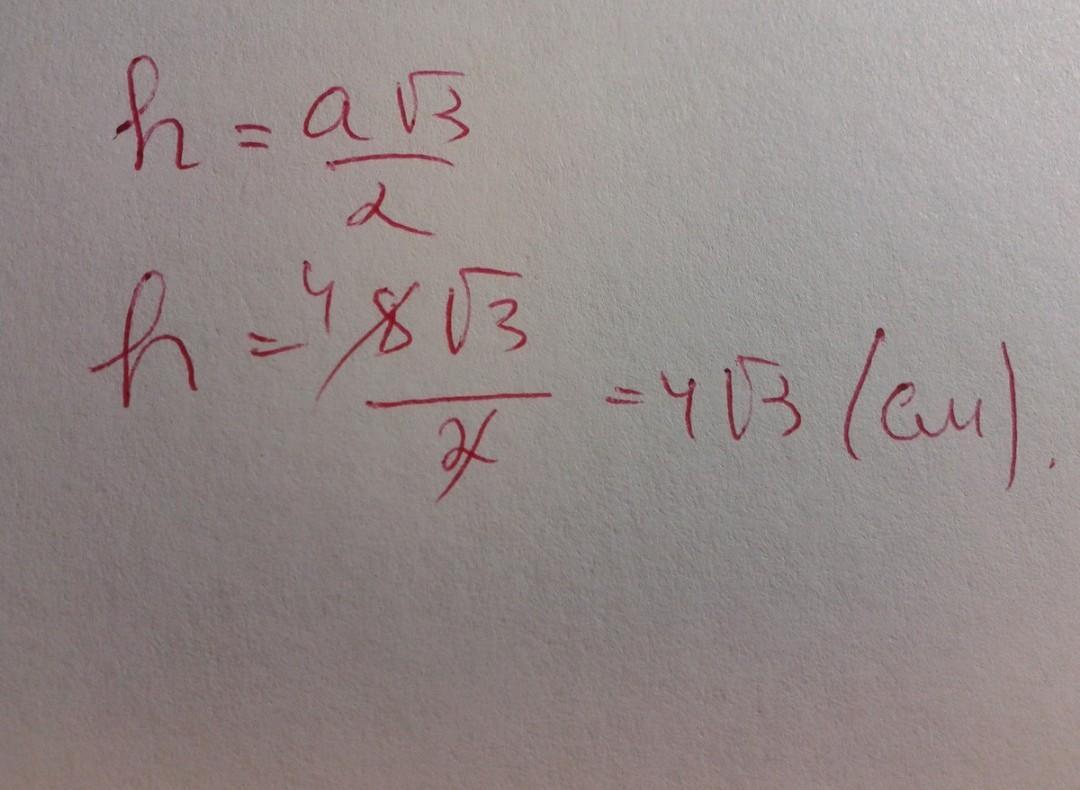 h = a√3/2
h = 4 8√3/2 = 4√3 (см).